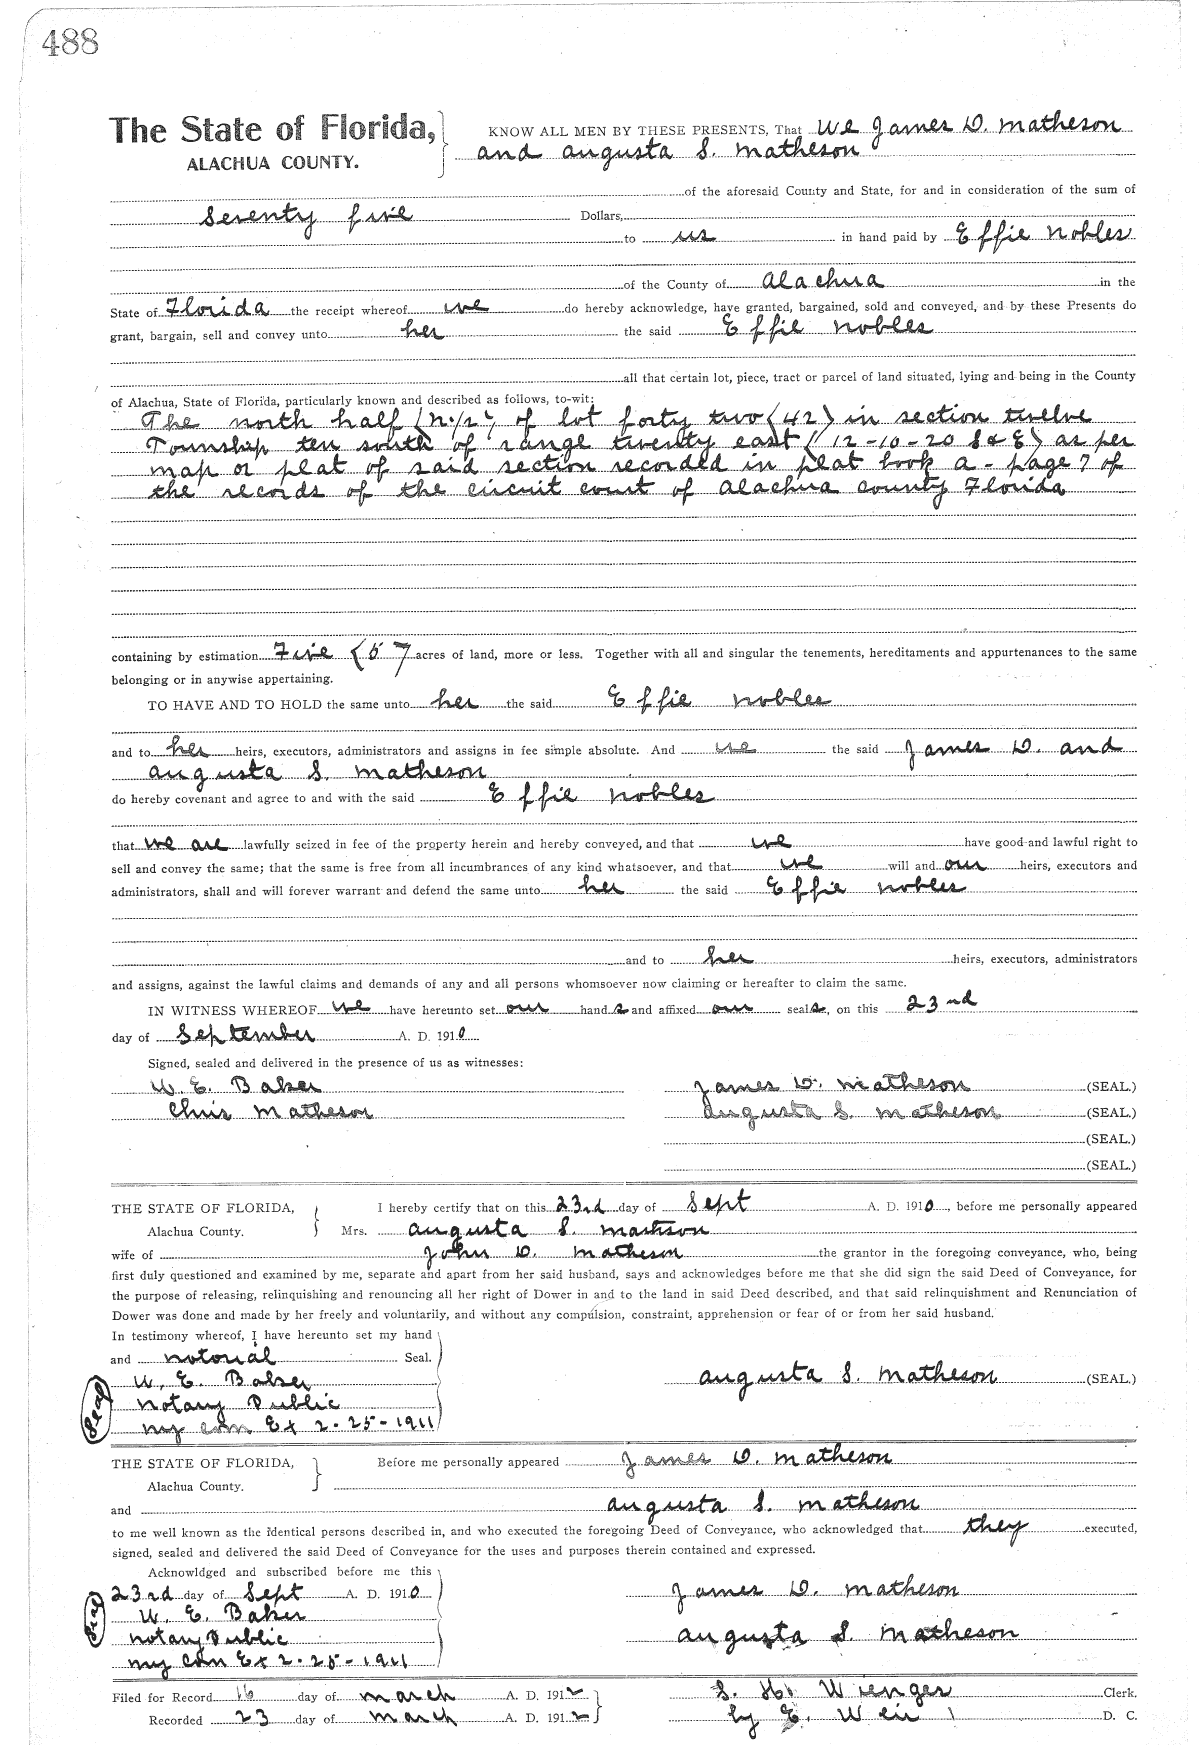 488
The State of Florida, KNOW ALL MEN BY THESE PRESENTS, That we James D. Matheson
ALACHUA COUNTY. and Augusta S. Matheson
of the aforesaid County and State, for and in consideration of the sum of
Seventy five Dollars,
to us in hand paid by Effie Nobles
of the County of Alachua in the
State of Florida the receipt whereof we do hereby acknowledge, have granted, bargained, sold and conveyed, and by these Presents do
grant, bargain, sell and convey unto her the said Effie Nobles
all that certain lot, piece, tract or parcel of land situated, lying and being in the County
of Alachua, State of Florida, particularly known and described as follows, to-wit:
The north half (N.1/2) of lot forty two (42) in section twelve
Township ten south of range twenty east (12-10-20 S & E) as per
map or plat of said section recorded in plat book A - page 7 of
the records of the circuit court of Alachua county Florida
containing by estimation Five (5) acres of land, more or less. Together with all and singular the tenements, hereditaments and appurtenances to the same
belonging or in anywise appertaining.
TO HAVE AND TO HOLD the same unto her the said Effie Nobles
and to her heirs, executors, administrators and assigns in fee simple absolute. And we the said James D. and
Augusta S. Matheson
do hereby covenant and agree to and with the said Effie Nobles
that we are lawfully seized in fee of the property herein and hereby conveyed, and that we have good and lawful right to
sell and convey the same; that the same is free from all incumbrances of any kind whatsoever, and that we will and our heirs, executors and
administrators, shall and will forever warrant and defend the same unto her the said Effie Nobles
and to her heirs, executors, administrators
and assigns, against the lawful claims and demands of any and all persons whomsoever now claiming or hereafter to claim the same.
IN WITNESS WHEREOF we have hereunto set our hands and affixed our seals, on this 23nd
day of September A. D. 1910
Signed, sealed and delivered in the presence of us as witnesses:
W. E. Baker James D. Matheson (SEAL.)
Chris Matheson Augusta S. Matheson (SEAL.)
(SEAL.)
(SEAL.)
THE STATE OF FLORIDA, I hereby certify that on this 23rd day of Sept A. D. 1910, before me personally appeared
Alachua County. Mrs. Augusta S. Matheson
wife of John D. Matheson the grantor in the foregoing conveyance, who, being
first duly questioned and examined by me, separate and apart from her said husband, says and acknowledges before me that she did sign the said Deed of Conveyance, for
the purpose of releasing, relinquishing and renouncing all her right of Dower in and to the land in said Deed described, and that said relinquishment and Renunciation of
Dower was done and made by her freely and voluntarily, and without any compulsion, constraint, apprehension or fear of or from her said husband.
In testimony whereof, I have hereunto set my hand
and notorial Seal.
W. E. Baker Augusta S. Matheson (SEAL.)
Seal Notary Public
my com Ex 2-25-1911
THE STATE OF FLORIDA, Before me personally appeared James D. Matheson
Alachua County.
and Augusta S. Matheson
to me well known as the identical persons described in, and who executed the foregoing Deed of Conveyance, who acknowledged that they executed,
signed, sealed and delivered the said Deed of Conveyance for the uses and purposes therein contained and expressed.
Acknowldged and subscribed before me this
23rd day of Sept A. D. 1910 James D. Matheson
Seal W. E. Baker
Notary Public Augusta S. Matheson
my com Ex 2-25-1911
Filed for Record 16 day of March A. D. 1912 S. H. Wienges Clerk.
Recorded 23 day of March A. D. 1912 by E. Weir D. C.